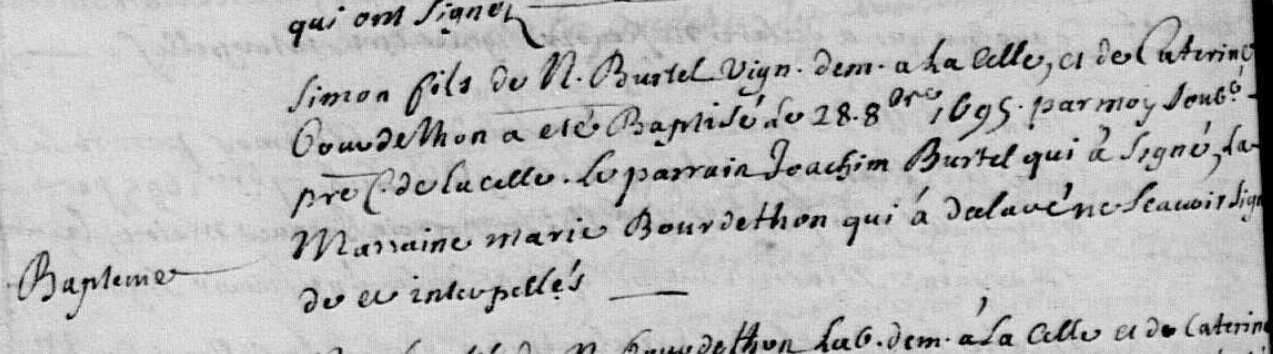 qui ont signez
Simon fils de N. Burtel Vign. dem. a La Celle, et de Caterine
Bourdethon a eté Baptisé le 28. 8bre 1695. par moy Soubs.é
pre C. de Lacelle. Le parrain Joachim Burtel qui à Signé, La
Marraine marie Bourdethon qui á declaré ne Scauoir sign
Bapteme
de ce interpellés
Bourdethon Lab. dem. à La Celle et de Caterine